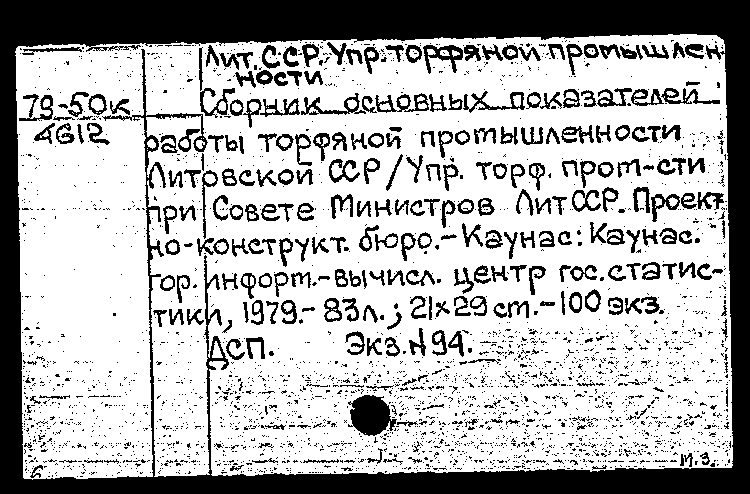 Лит. ССР. Упр. торфяной промышлен-
ности
79-50к Сборник основных показателей
4612 работы торфяной промышленности
Литовской ССР/Упр. торф. пром-сти
при Совете Министров Лит ССР. Проект
но-конструкт. бюро.-Каунас: Каунас.
гор. информ.-вычисл. центр гос. статис-
тики, 1979.- 83л.; 21×29 cm.-100 экз.
ДСП. Экз.N94.
м.з.